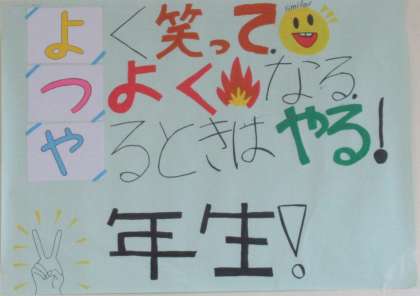 よく笑って、
つよくなる。
やるときはやる!
年生!